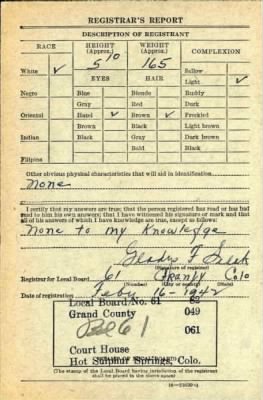 REGISTRAR'S REPORT
DESCRIPTION OF REGISTRANT
RACE HEIGHT (Approx.) WEIGHT (Approx.) COMPLEXION
White ✓ 5 10 165 Sallow
EYES HAIR Light ✓
Negro Blue Blonde Ruddy
Gray Red Dark
Oriental Hazel ✓ Brown ✓ Freckled
Brown Black Light brown
Indian Black Gray Dark brown
Bald Black
Filipino
Other obvious physical characteristics that will aid in identification
None
I certify that my answers are true; that the person registered has read or has had
read to him his own answers; that I have witnessed his signature or mark and that
all of his answers of which I have knowledge are true, except as follows:
None to my Knowledge
Gladys F
(Signature of registrar)
Registrar for Local Board 61 Grand Colo
(Number) (City or county) (State)
Date of registration Feb. 16-1942
Local Board No. 61 62
Grand County 049
061
Court House
Hot Sulphur Springs, Colo.
(The stamp of the Local Board having jurisdiction of the registrant
shall be placed in the above space.)